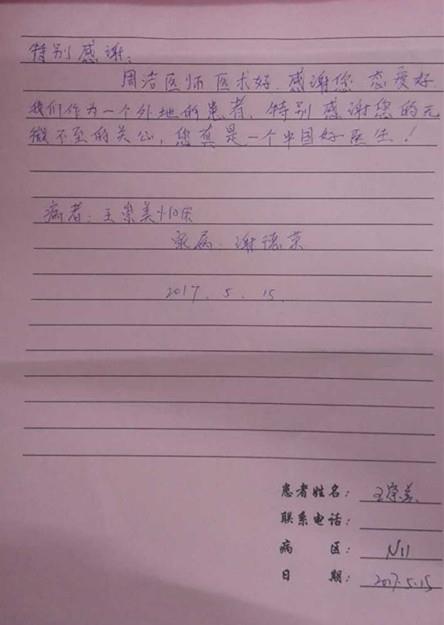 特别感谢:
周洁医师医术好,感谢您 态度好
我们作为一个外地的患者,特别感谢您的无
微不至的关心,您真是一个中国好医生!
病者:王崇美 10床
家属:谢德京
2017.5.15.
患者姓名:王崇美
联系电话:
病 区:N11
日 期:2017.5.15